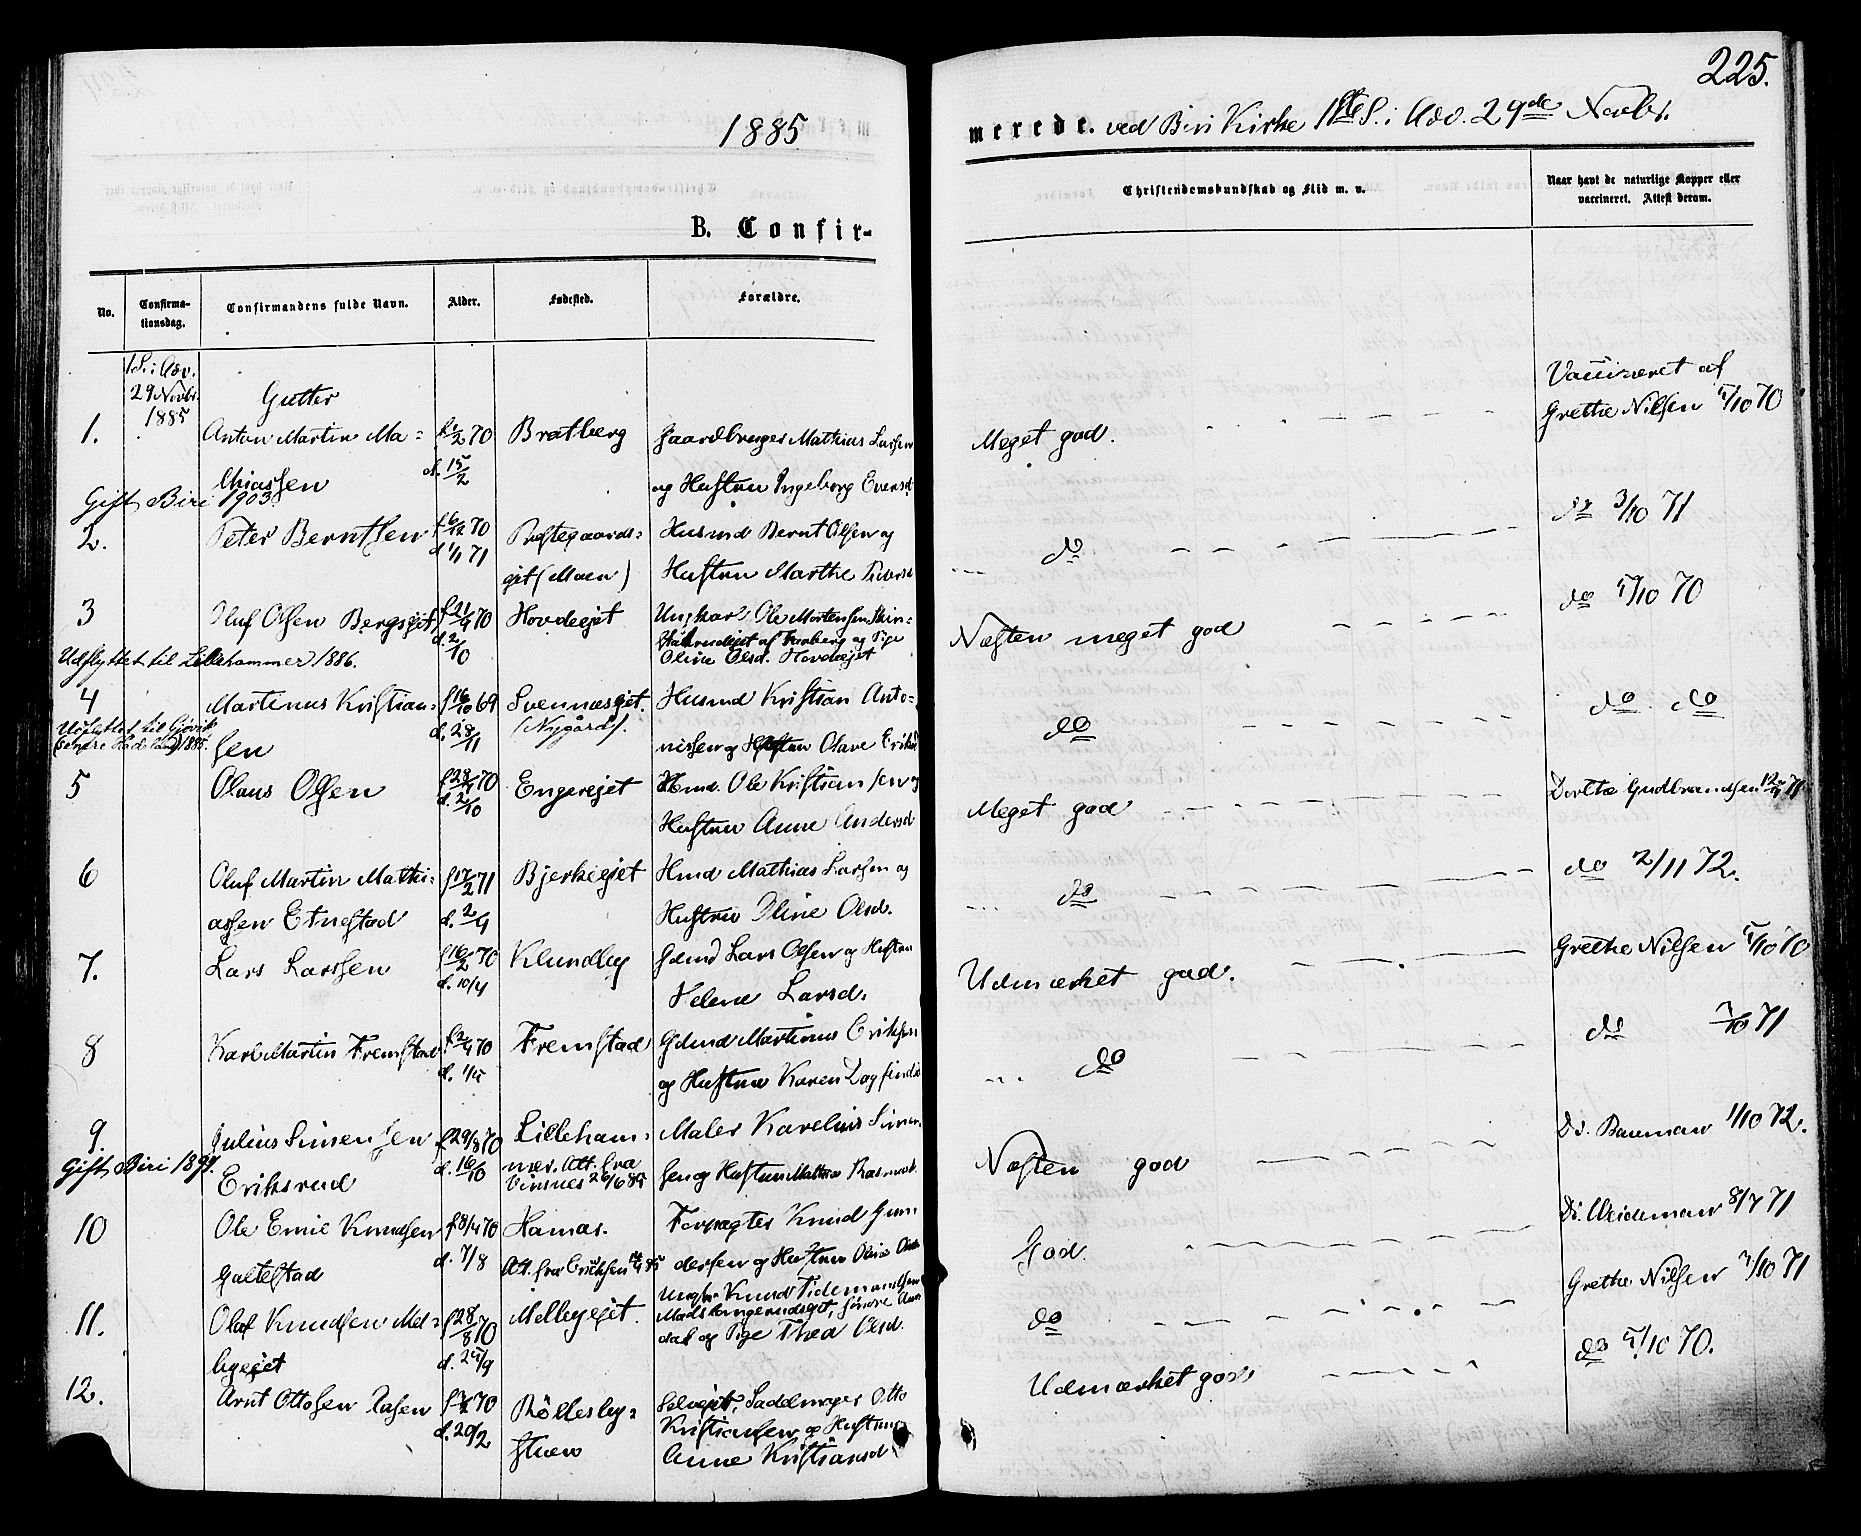 1885
B. Confir-
No.
Confirma-
tionsdag.
Confirmandens fulde Navn.
Alder.
Fødested.
Forældre.
1 S. i Adv.
29 Novbr.
1885
Gutter
1. Anton Martin Ma- f. 1/2 70 Bratberg Gaardbruger Mathias Larsen
thiassen d. 15/2 og Hustru Ingeborg Evensd
Gift Biri 1903.
2. Peter Berntsen f. 6/12 70 Præstegaards- Husmd Bernt Olsen og
d. 1/1 71 ejet (Moen) Hustru Marthe
3 Oluf Olsen Bergsejet f. 21/9 70 Hovdeejet Ungkar Ole Mortensen
d. 2/10 af Faaberg og Pige
Oline Olsd. Hovdeejet
Udflyttet til Lillehammer 1886.
4 Martinus Kristian- f. 16/10 69 Svennæsejet. Husmd Kristian Anto-
sen d. 28/11 (Nygård). nissen og Hustru Olave
Udflyttet til Gjøvik
1885.
5 Olaus Olsen f. 28/9 70 Engerejet Hmd. Ole Kristiansen og
d. 2/10 Hustru Anne Andersd
6 Oluf Martin Mathi- f. 17/2 71 Bjerkeejet Hmd Mathias Larsen og
assen Etnestad d. 2/4 Hustru Oline Olsd.
7. Lars Larssen f. 16/2 70 Klundby Gdmd Lars Olsen og Hustru
d. 10/4 Helene Larsd.
8 Karl Martin Fremstad f. 2/4 70 Fremstad Gdmd Martinus Eriksen
d. 1/5 og Hustru Karen Dagfinds
9. Julius Simensen f. 29/8 70 Lilleham- Maler Karelius Simen
Eriksrud d. 16/10 mer. Att. fra sen og Hustru Mathea Rasmusd.
Vinsnes 26/6 85
Gift Biri 1897.
10 Ole Emil Knudsen f. 8/4 70 Hamar. Forpagter Knud Gun
Galtestad d. 7/8 Att. fra Eriksen 85 dersen og Hustru Oline
11. Olaf Knudsen Mel- f. 28/8 70 Melbyejet. Ungkr Knud Tidemandsen
byejet d. 25/9 søndre Aur
dal og Pige Thea Olsd.
12. Arnt Ottosen f. 70 Röllesby- Selvejer, Sadelmager Otto
d. 20/2 stuen Kristiansen og Hustru
Anne Kristiansd
225.
merede. ved Biri Kirke 1ste S. i Adv. 29de Novbr.
Christendomskundskab og Flid m. v.
Naar havt de naturlige Kopper eller
vaccineret. Attest derom.
Vaccineret af
Meget god. Grethe Nilsen 5/10 70
do do 3/10 71
Næsten meget god do 5/10 70
do do do
Meget god Dorthe Gudbrandsen 12/9 71
do do 2/11 72.
Udmærket god. Grethe Nilsen 5/10 70
do do 7/10 71
Næsten god Dr. Bauman 1/10 72.
God Dr. Weideman 8/7 71
do Grethe Nilsen 7/10 71
Udmærket god do 5/10 70.